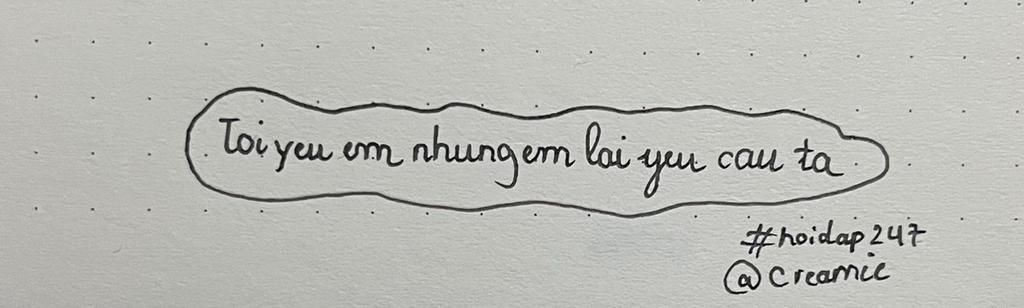 Toi yeu em nhung em lai yeu cau ta
#hoidap247
@creamie